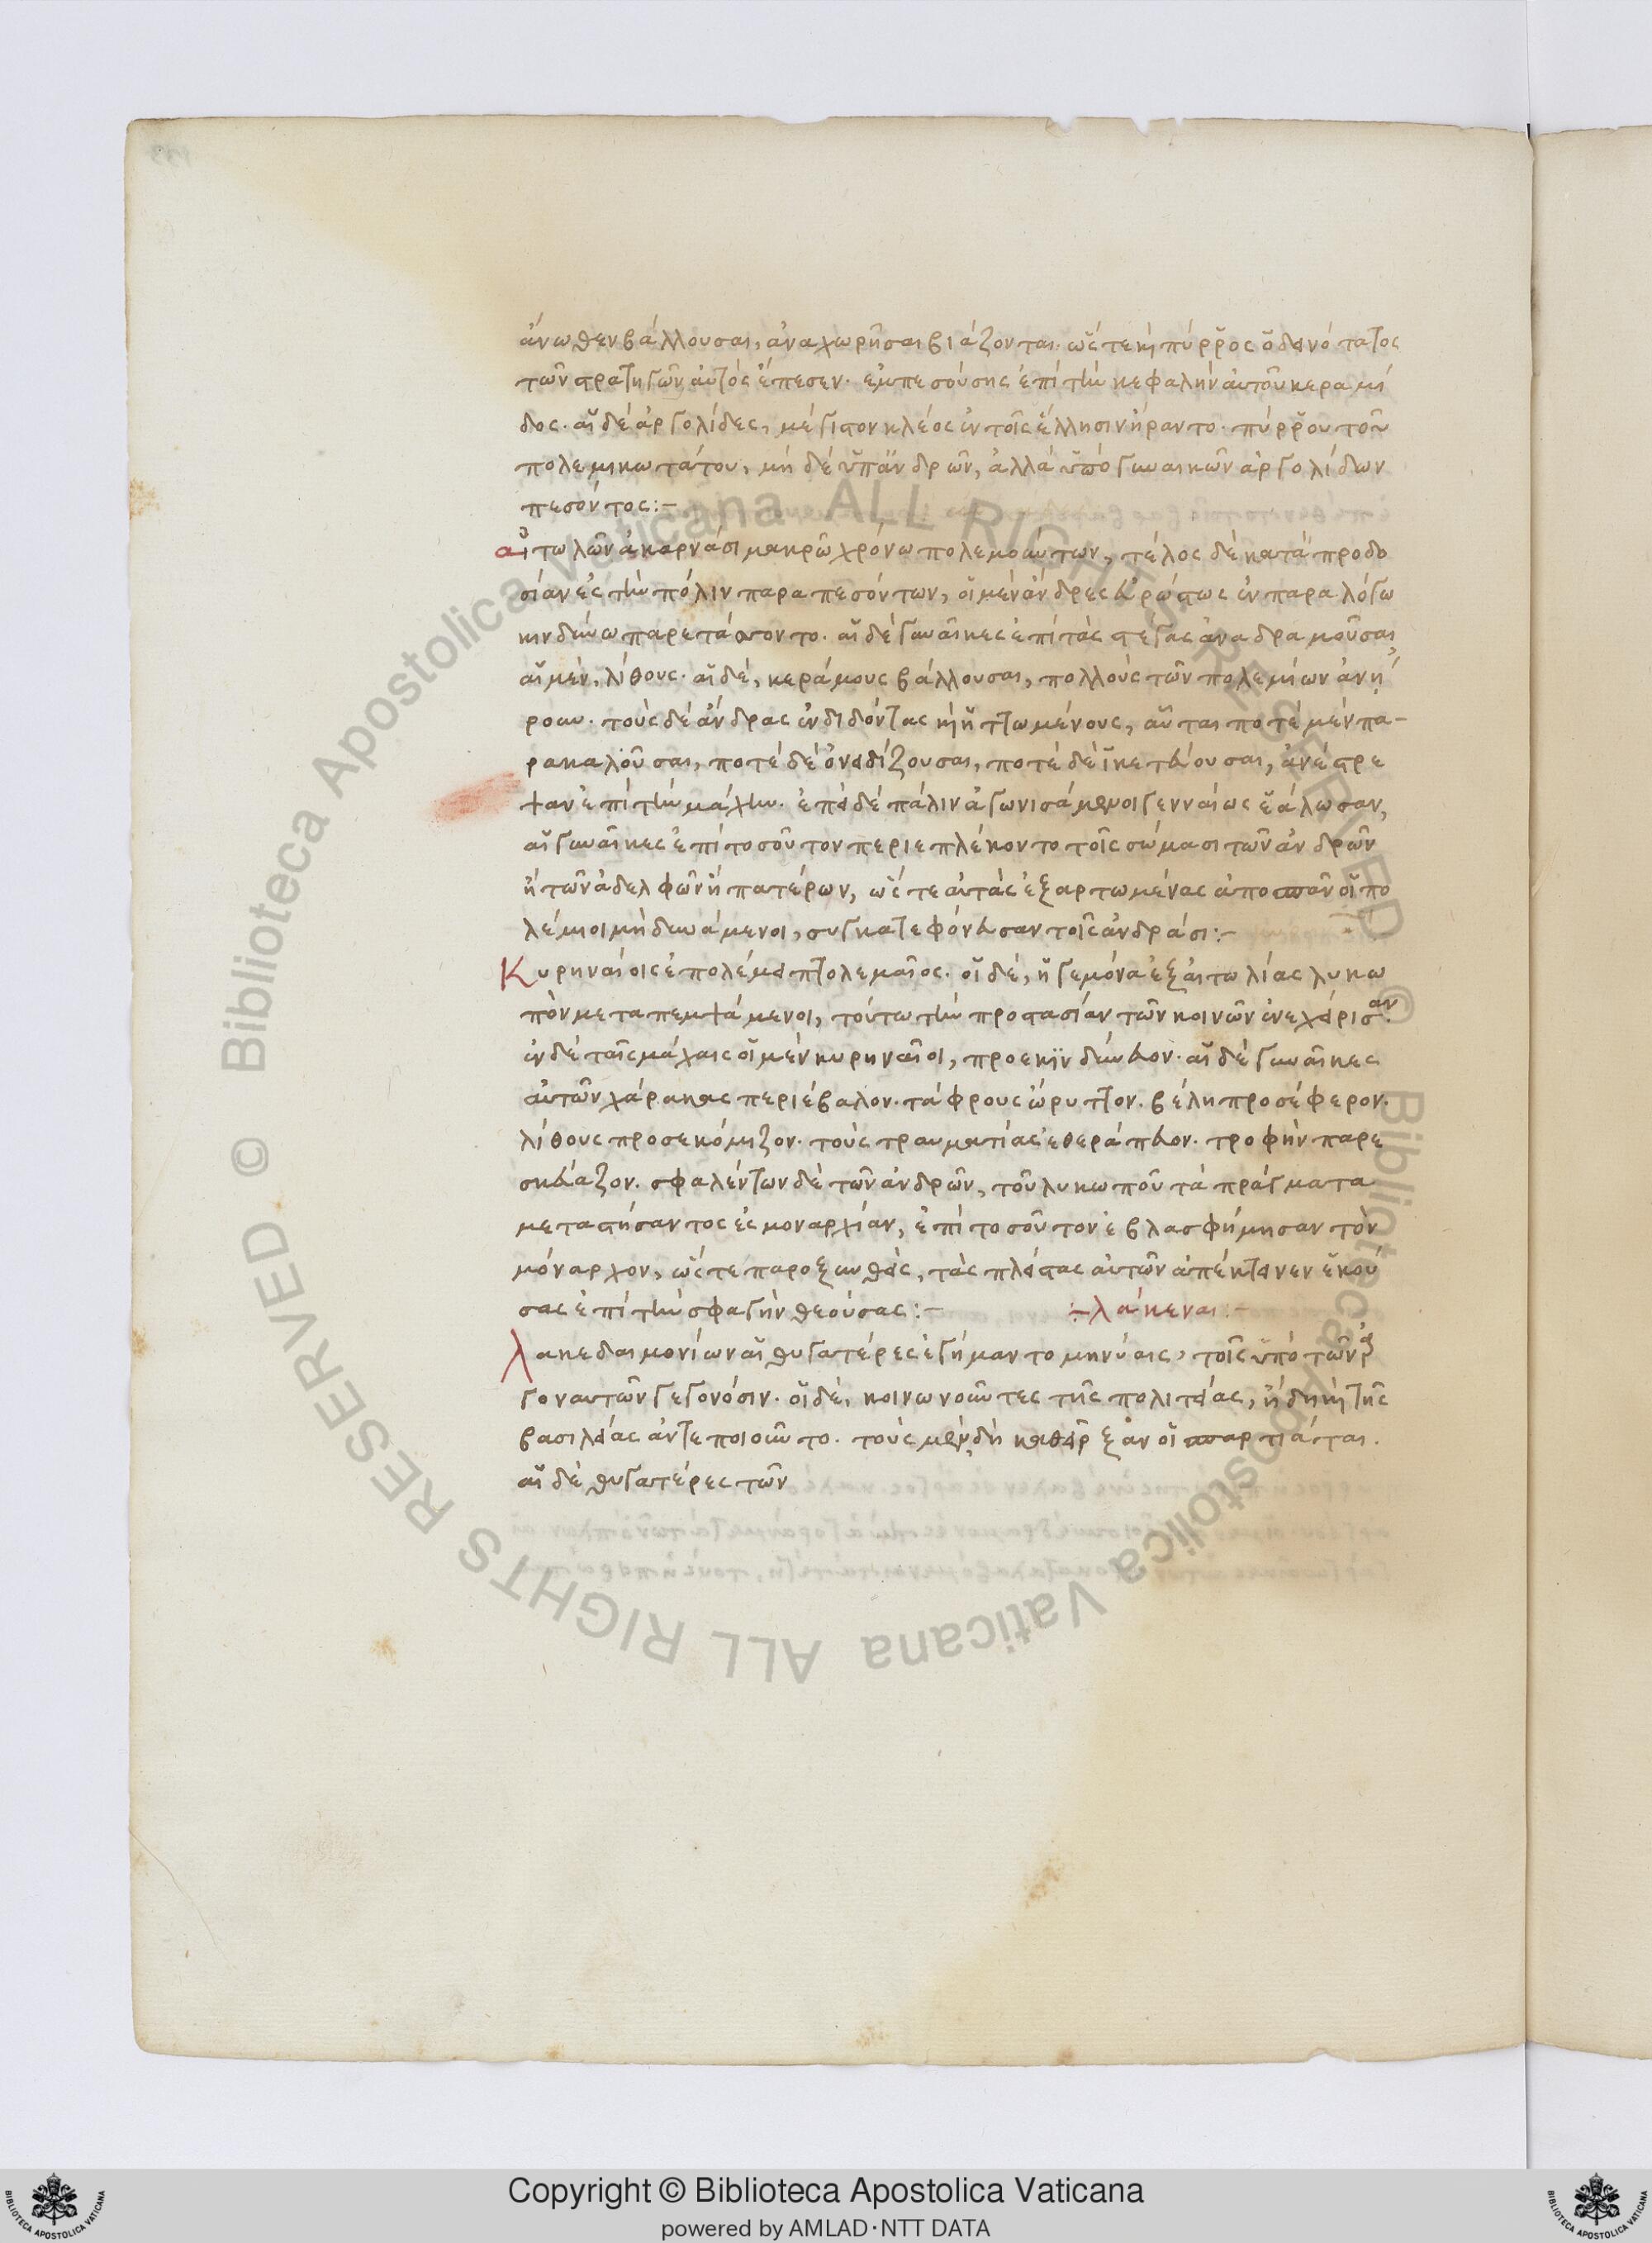 ἄνωθεν βάλλουσαι, ἀναχωρῆσαι βιάζονται. ὥστε καὶ πύρρος ὁ δεινότατος
τῶν στρατηγῶν αὐτὸς ἔπεσεν. ἐμπεσούσης ἐπὶ τὴν κεφαλὴν αὐτοῦ κεραμί
δος. αἱ δὲ ἀργολίδες, μέγιστον κλέος ἐν τοῖς ἕλλησιν ἤραντο. πύρρου τοῦ
πολεμικωτάτου, μὴ δὲ ὑπ' ἀνδρῶν, ἀλλὰ ὑπὸ γυναικῶν ἀργολίδων
πεσόντος:-
αἰτωλῶν ἀκαρνάσι μακρῶ χρόνω πολεμούντων, τέλος δὲ κατὰ προδο
σίαν ἐς τὴν πόλιν παραπεσόντων, οἱ μὲν ἄνδρες εὐρώστως ἐν παραλόγω
κινδύνω παρετάσσοντο. αἱ δὲ γυναῖκες ἐπὶ τὰς στέγας ἀναδραμοῦσαι
αἱ μὲν, λίθους. αἱ δὲ, κεράμους βάλλουσαι, πολλοὺς τῶν πολεμίων ἀνή
ρουν. τοὺς δὲ ἄνδρας ἐνδιδόντας καὶ ἡττωμένους, αὗται ποτὲ μὲν πα-
ρακαλοῦσαι, ποτὲ δὲ ὀνειδίζουσαι, ποτὲ δὲ ἱκετεύουσαι, ἀνέστρε
ψαν ἐπὶ τὴν μάχην. ἐπεὶ δὲ πάλιν ἀγωνισάμενοι γενναίως ἑάλωσαν,
αἱ γυναῖκες ἐπὶ τοσοῦτον περιεπλέκοντο τοῖς σώμασι τῶν ἀνδρῶν
ἢ τῶν ἀδελφῶν ἢ πατέρων, ὥστε αὐτὰς ἐξαρτωμένας ἀποσπᾶν οἱ πο
λέμιοι μὴ δυνάμενοι, συγκατεφόνευσαν τοῖς ἀνδράσι:-
Κυρηναίοις ἐπολέμει πτολεμαῖος. οἱ δὲ, ἡγεμόνα ἐξ αἰτωλίας λυκω
πὸν μεταπεμψάμενοι, τούτω τὴν προστασίαν τῶν κοινῶν ἐνεχείρισαν.
ἐν δὲ ταῖς μάχαις οἱ μὲν κυρηναῖοι, προεκινδύνευον. αἱ δὲ γυναῖκες
αὐτῶν χάρακας περιέβαλον. τάφρους ὤρυττον. βέλη προσέφερον.
λίθους προσεκόμιζον. τοὺς τραυματίας ἐθεράπευον. τροφὴν παρε
σκεύαζον. σφαλέντων δὲ τῶν ἀνδρῶν, τοῦ λυκωποῦ τὰ πράγματα
μεταστήσαντος ἐς μοναρχίαν, ἐπὶ τοσοῦτον ἐβλασφήμησαν τὸν
μόναρχον, ὥστε παροξυνθεὶς, τὰς πλείστας αὐτῶν ἀπέκτεινεν ἑκού
σας ἐπὶ τὴν σφαγὴν θεούσας:- :-λάκεναι:-
λακεδαιμονίων αἱ θυγατέρες ἐγήμαντο μηνύαις, τοῖς ὑπὸ τῶν ἀρ
γοναυτῶν γεγονόσιν. οἱ δὲ, κοινωνοῦντες τῆς πολιτείας, ἤδη καὶ τῆς
βασιλείας ἀντεποιοῦντο. τοὺς μὲν δὴ καθεῖρξαν οἱ σπαρτιάται.
αἱ δὲ θυγατέρες τῶν
Copyright © Biblioteca Apostolica Vaticana
powered by AMLAD·NTT DATA